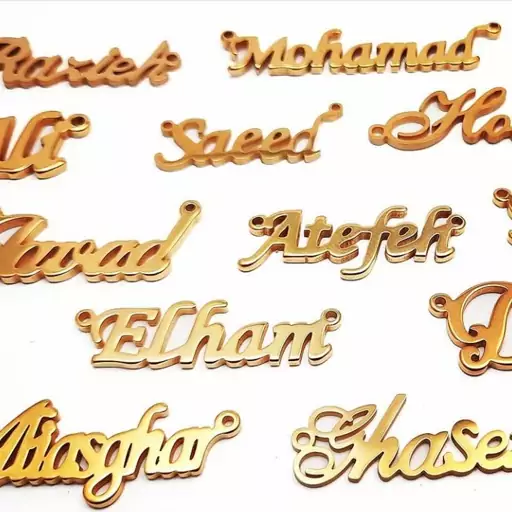 Razieh Mohamad
Ali Saeed Ho
Javad Atefeh
Elham D
Aliasghar Ghase